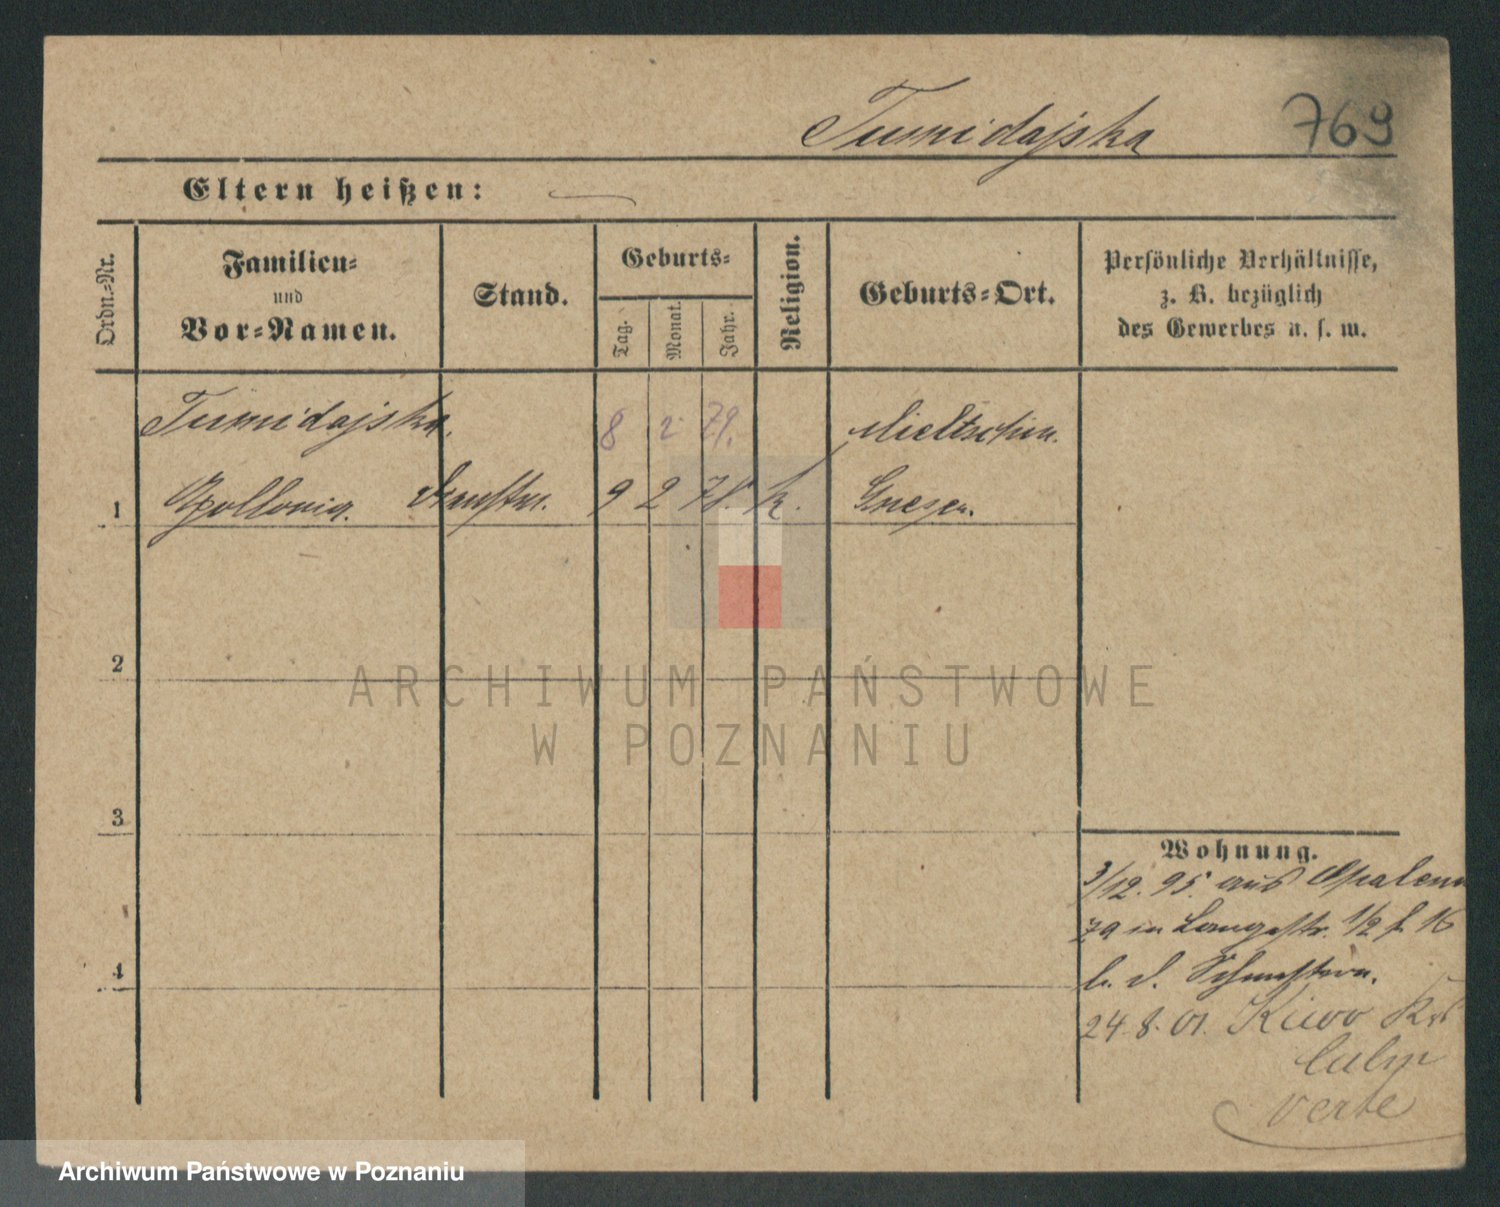 Tumidajska 769
Eltern heißen:
Ordn.-Nr.
Familien-
und
Vor-Namen.
Stand.
Geburts-
Tag.
Monat.
Jahr.
Religion.
Geburts-Ort.
Persönliche Verhältnisse,
z. B. bezüglich
des Gewerbes u. s. w.
Tumidajska. 8 2 79. Mieltschin.
1 Apollonia. 9 2 78. k. Gnesen.
2
3
4
Wohnung.
3/12. 95. aus
79 in Langestr. 1/2 16
b. d. Schwestern.
24. 8. 01. Krs
Culm
verte
ARCHIWUM PAŃSTWOWE
W POZNANIU
Archiwum Państwowe w Poznaniu